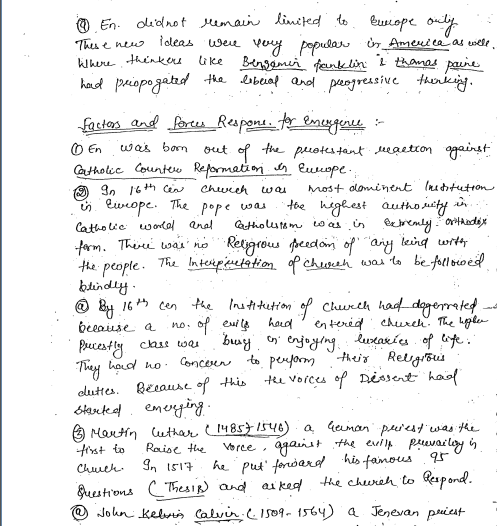 ④ En. did not remain limited to Europe only
These new ideas were very popular in America as well.
Where thinkers like Benjamin franklin & thomas paine
had priopogated the liberal and progressive thinking.
factors and forces Respons. for emergence :-
① En was born out of the protestant reaction against
Catholic Counter Reformation in Europe.
② In 16th cen church was most dominent Institution
in Europe. The pope was the highest authority in
Catholic world and Catholisism was in Extremly orthodox
form. There was no Religious freedom of any kind with
the people. The Interpretation of church was to be followed
blindly.
ⓐ By 16th cen the Institution of church had degerrated
because a no. of evils had entered church. The higher
Priestly class was busy in enjoying luxaries of life.
They had no concern to perform their Religious
duties. Because of this the voices of Dissent had
started emerging.
③ Martin Luthar (1485-1546) a German priest was the
first to Raise the voice, against the evils prevailing in
church. In 1517 he put forward his famous 95
Questions (Thesis) and asked the church to Respond.
ⓐ John Kelvin Calvin (1509-1564) a Jenevan priest